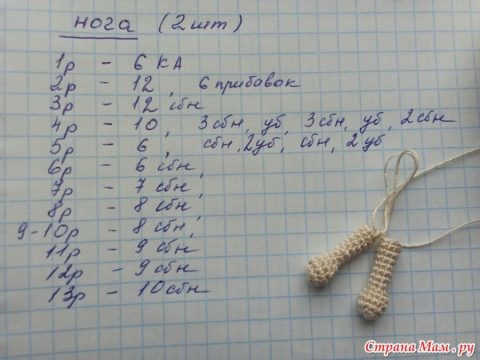 нога (2 шт)
1р - 6 КА
2р - 12, 6 прибавок
3р - 12 сбн
4р - 10, 3сбн, уб, 3сбн, уб, 2сбн
5р - 6, сбн, 2уб, сбн, 2 уб
6р - 6 сбн,
7р - 7 сбн
8р - 8 сбн,
9-10р - 8 сбн,
11р - 9 сбн
12р - 9 сбн
13р - 10 сбн
Страна Мам.ру